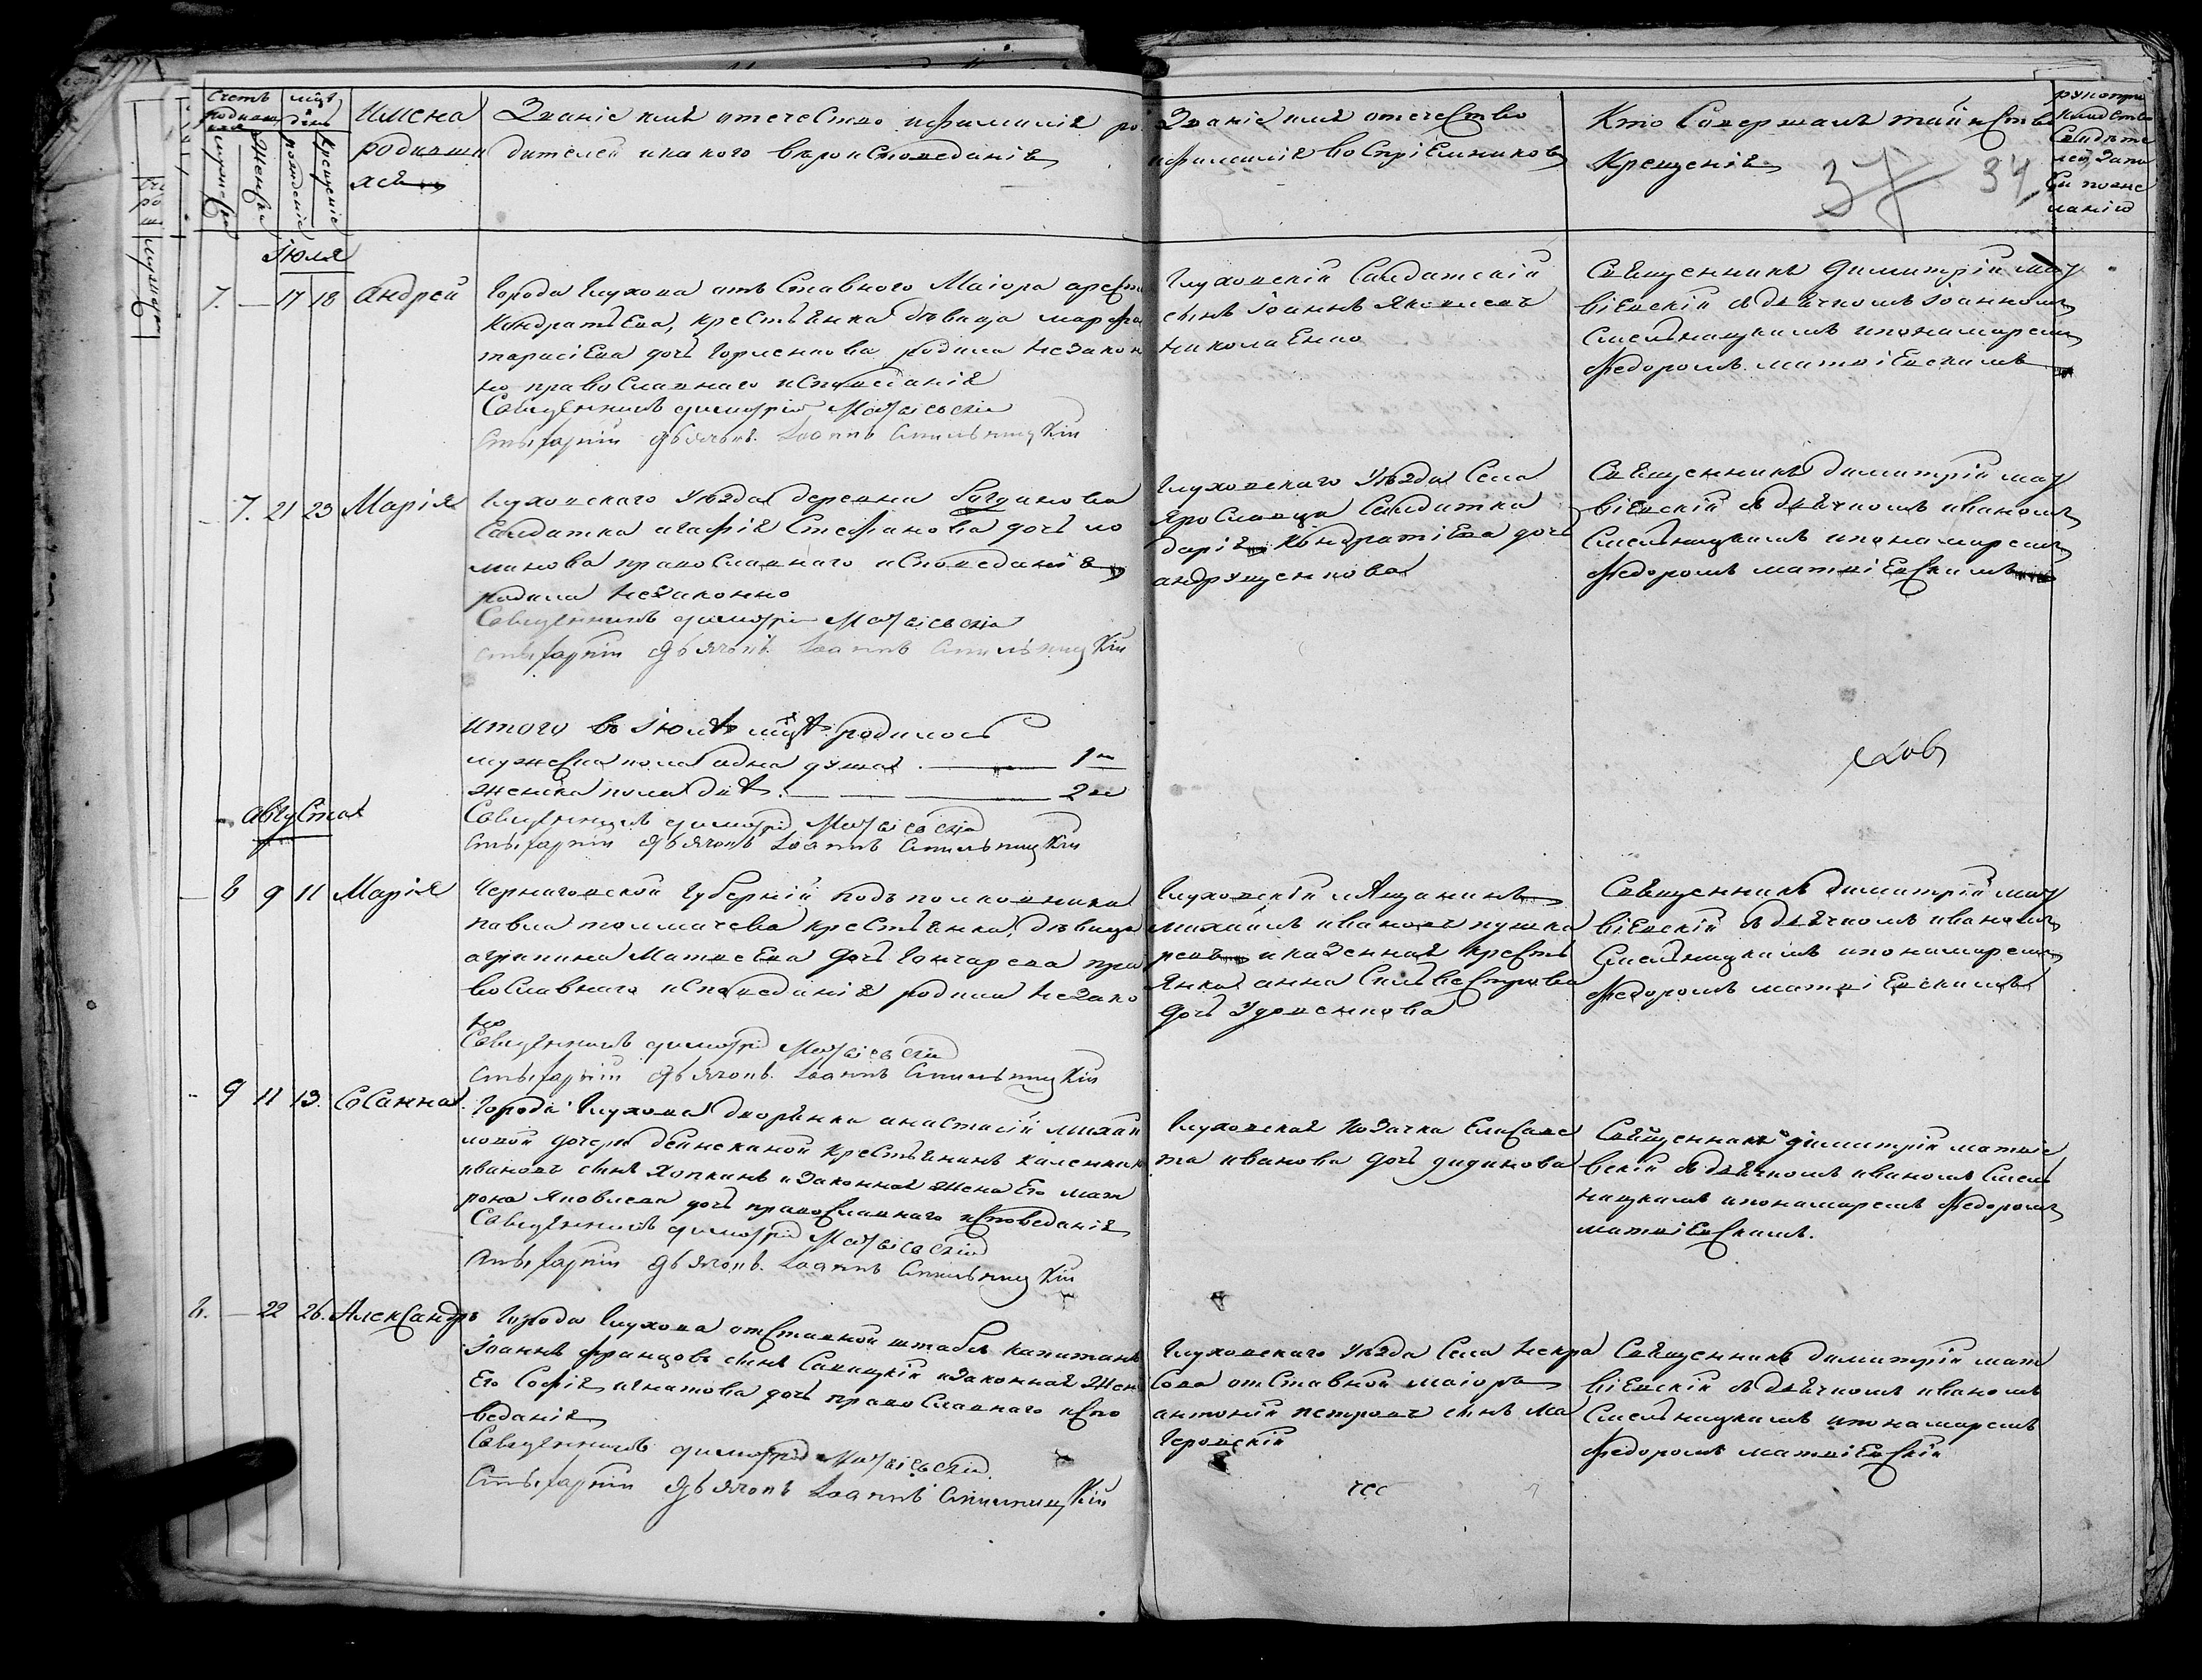 Счетъ родившихся
мужеска
женска
мцъ и день
рожденіе
крещеніе
Имена
родивши
хся
Званіе имя отечество и фамилія ро
дителей и какого вероисповеданія
Званіе имя отечество
и фамилія воспріемниковъ
Кто совершалъ таинство
Крещенія
37 34
Іюля
7. — 17 18 Андрей
Города Глухова отъ Ставного Маіора
Кондратьева, крестьянка девица марфа
тарасіева дочь Горленкова родила незакон
но православнаго исповеданія
Священникъ димитрій Матвіевскій
Стихарный Дьячокъ Іоаннъ Смельницкій
Глуховскій Салдатскій
сынъ Іоаннъ Яковлевъ
николаенко
Священникъ Димитрій мат
віевскій съ дьячкомъ Іоанномъ
Смельницкимъ и понамаремъ
Федоромъ матвіевскимъ
— 7. 21 23 Марія
Глуховскаго уезда деревни Богданова
Салдатка агафія Стефанова дочь ло
манова православнаго исповеданія
родила незаконно
Священникъ димитрій Матвіевскій
стихарный Дьячокъ Іоаннъ Смельницкій
Глуховскаго уезда Села
Ярославца Салдатка
дарія Кондратіева дочь
андрущенкова
Священникъ димитрій мат
віевскій съ дьячкомъ иваномъ
Смельницкимъ и понамаремъ
Федоромъ матвіевскимъ
итого въ Іюлѣ мцѣ родилось
мужеска пола одна душа — 1
женска пола двѣ — 2
Священникъ димитрій Матвіевскій
Стихарный Дьячокъ Іоаннъ Смельницкій
августа
— 8 9 11 Марія
Черниговской Губерній подполковника
павла толмачева крестьянка, девица
агрипина Матвеева дочь Гончарева пра
вославнаго исповеданія родила незако
но
Священникъ димитрій Матвіевскій
Стихарный Дьячокъ Іоаннъ Смельницкій
Глуховскій мѣщанинъ
михаилъ ивановъ пушка
ревъ и казенная кресть
янка анна Сильвестрова
дочь Удовенкова
Священникъ димитрій мат
віевскій съ дьячкомъ иваномъ
Смельницкимъ и понамаремъ
Федоромъ матвіевскимъ
— 9 11 13. Сосанна
Города Глухова дворянки анастасіи михаи
ловой дочери дейнекиной крестьянинъ
ивановъ сынъ Хопкинъ и законная жена Его мат
рона Яковлева дочь православнаго исповеданія
Священникъ димитрій Матвіевскій
Стихарный Дьячокъ Іоаннъ Смельницкій
Глуховская козачка Елисаве
та иванова дочь дидинова
Священникъ димитрій матвіе
вскій съ дьячкомъ иваномъ Смель
ницкимъ и понамаремъ Федоромъ
матвіевскимъ.
8. — 22 26. Александръ
Города Глухова отставной штабсъ капитанъ
Іоаннъ францовъ сынъ Савицкій и законная жен
Его Софія игнатова дочь православнаго испо
веданія
Священникъ димитрій Матвіевскій
Стихарный Дьячокъ Іоаннъ Смельницкій
Глуховскаго уезда Села некра
сова отставной маіоръ
антоній петровъ сынъ Ма
геровскій
Священникъ димитрій мат
віевскій съ дьячкомъ иваномъ
Смельницкимъ и понамаремъ
Федоромъ матвіевскій